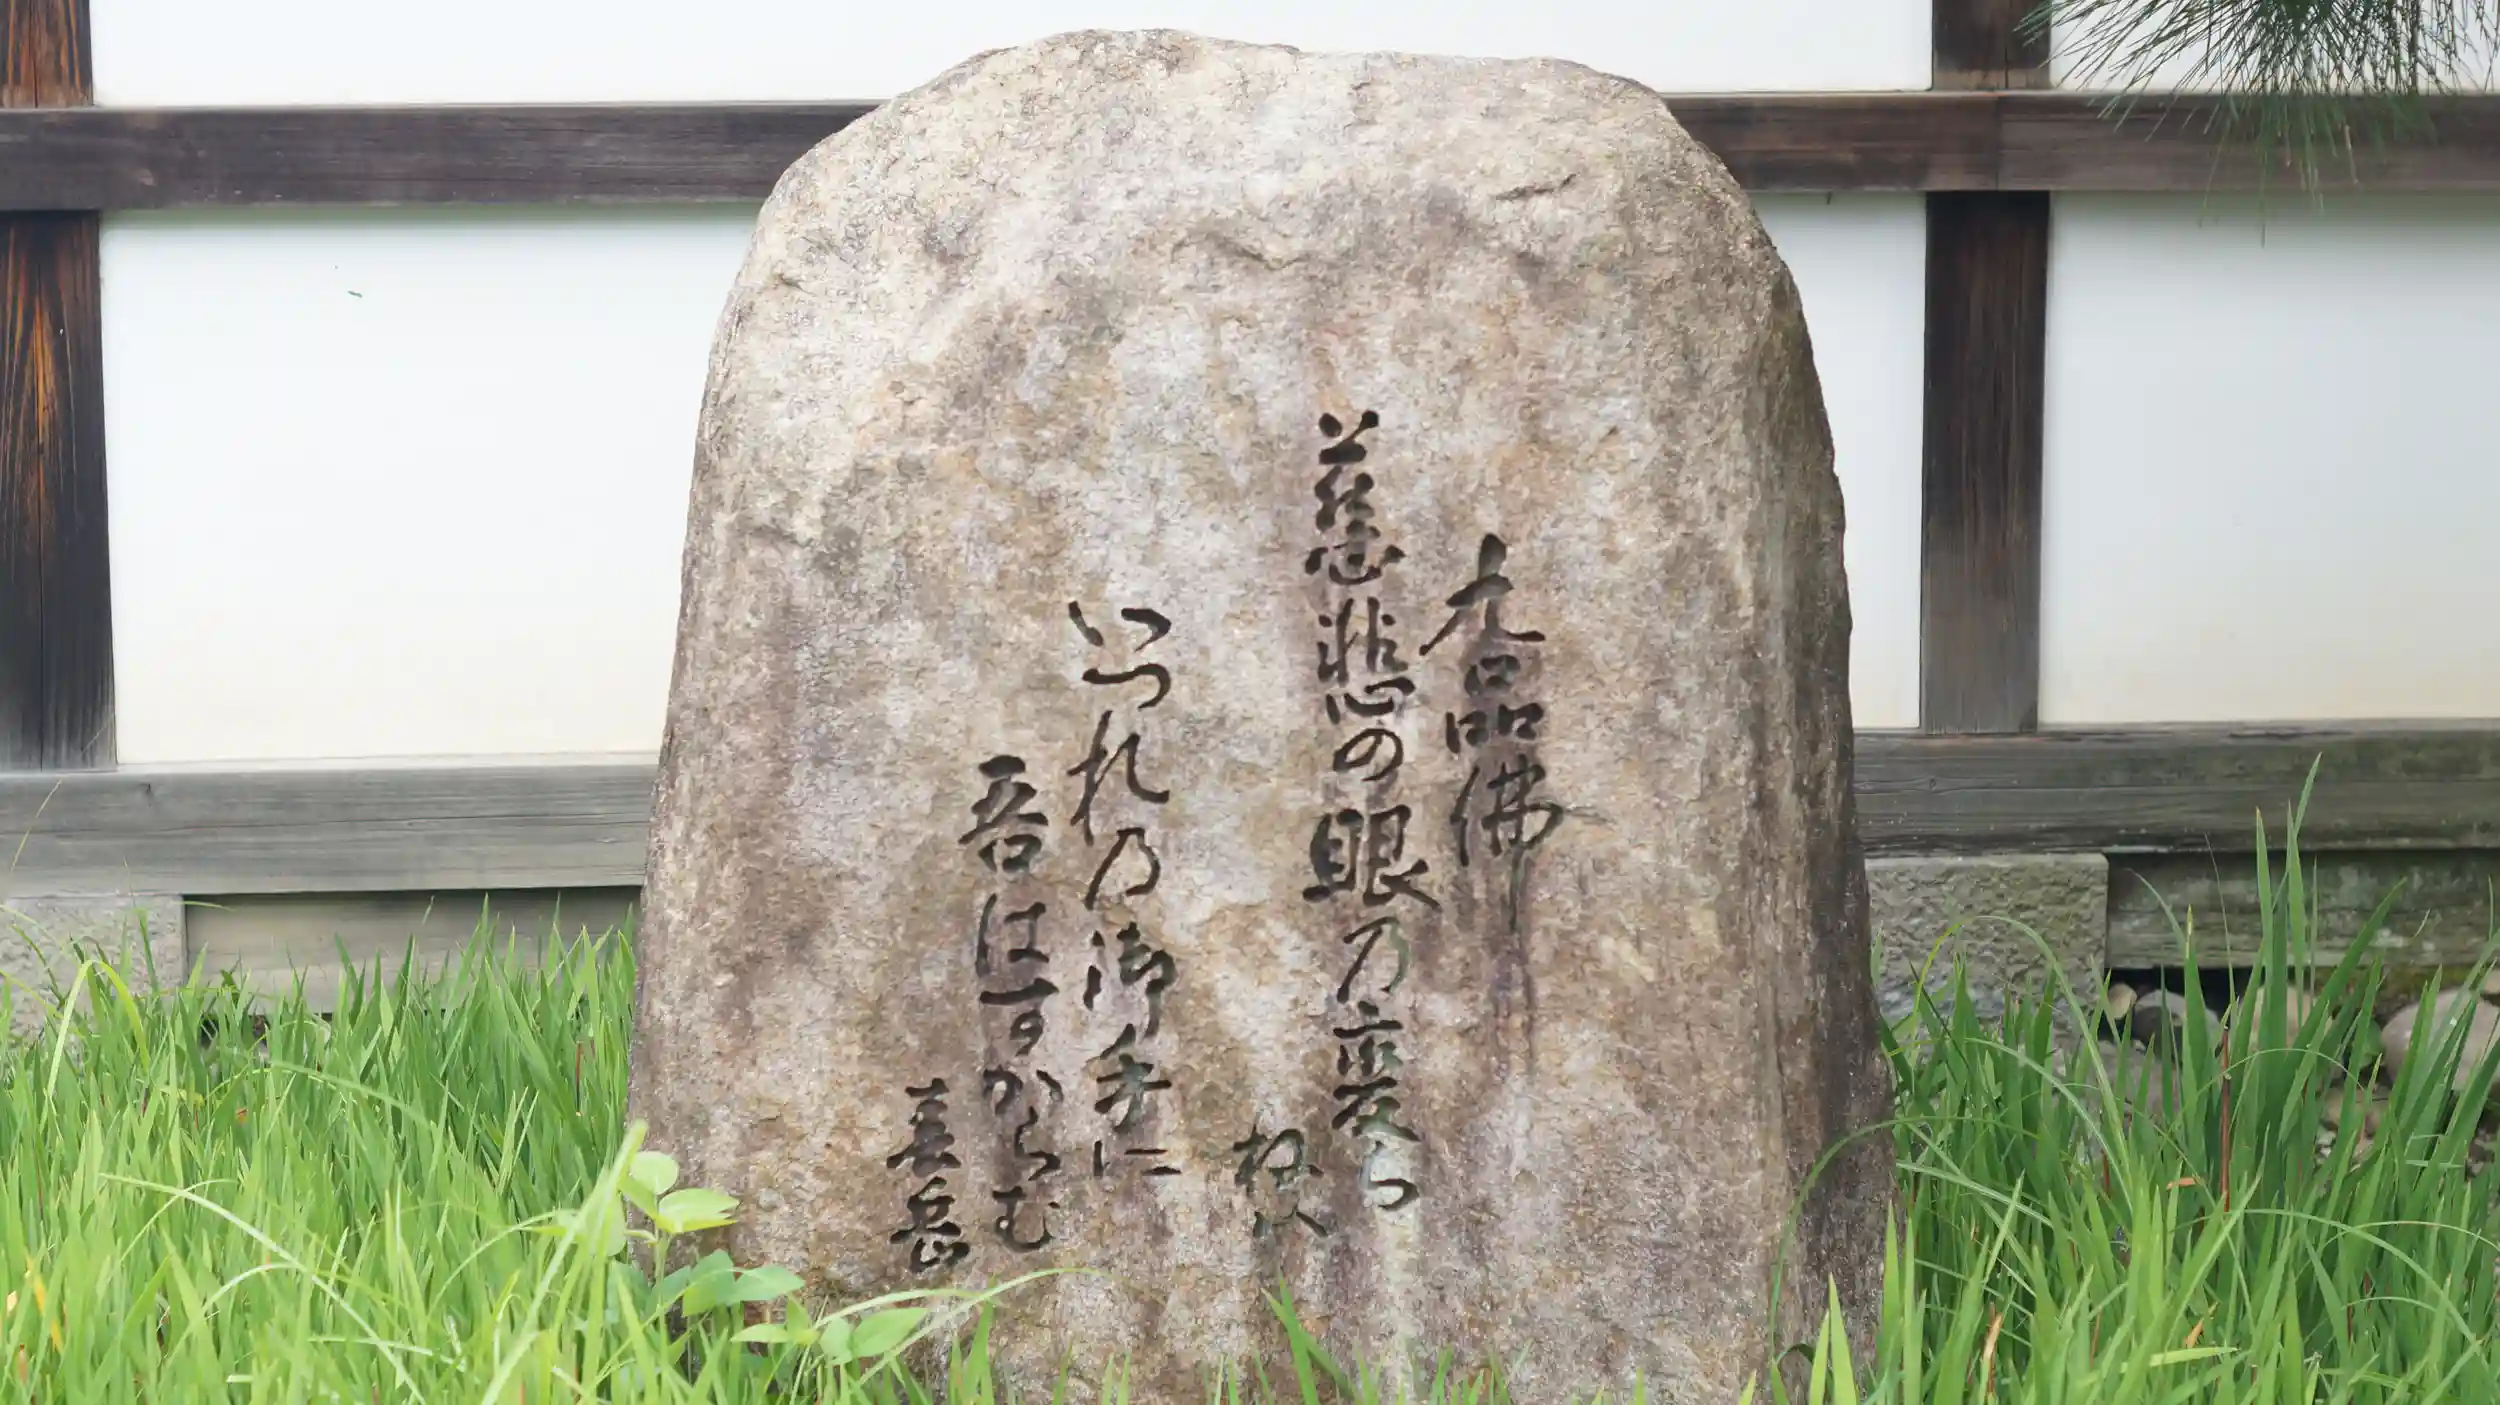 九品佛
慈悲の眼乃慶ら
いつれ乃御手に
吾はすからむ
喜岳